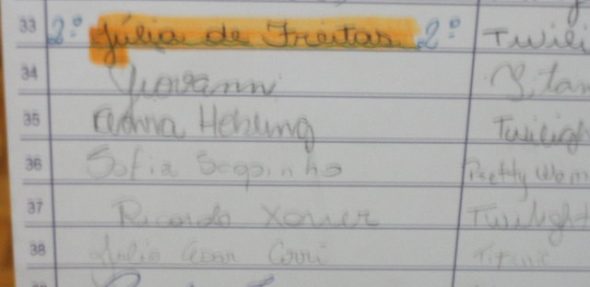 33 2º Júlia de Freitas 2º Twili
34 Giovanni Titan
35 Hehling Twiligh
36 Sofia Segainho Pretty Wom
37 Ricardo Xavier Twilight
38 Júlio Cesar Titanic